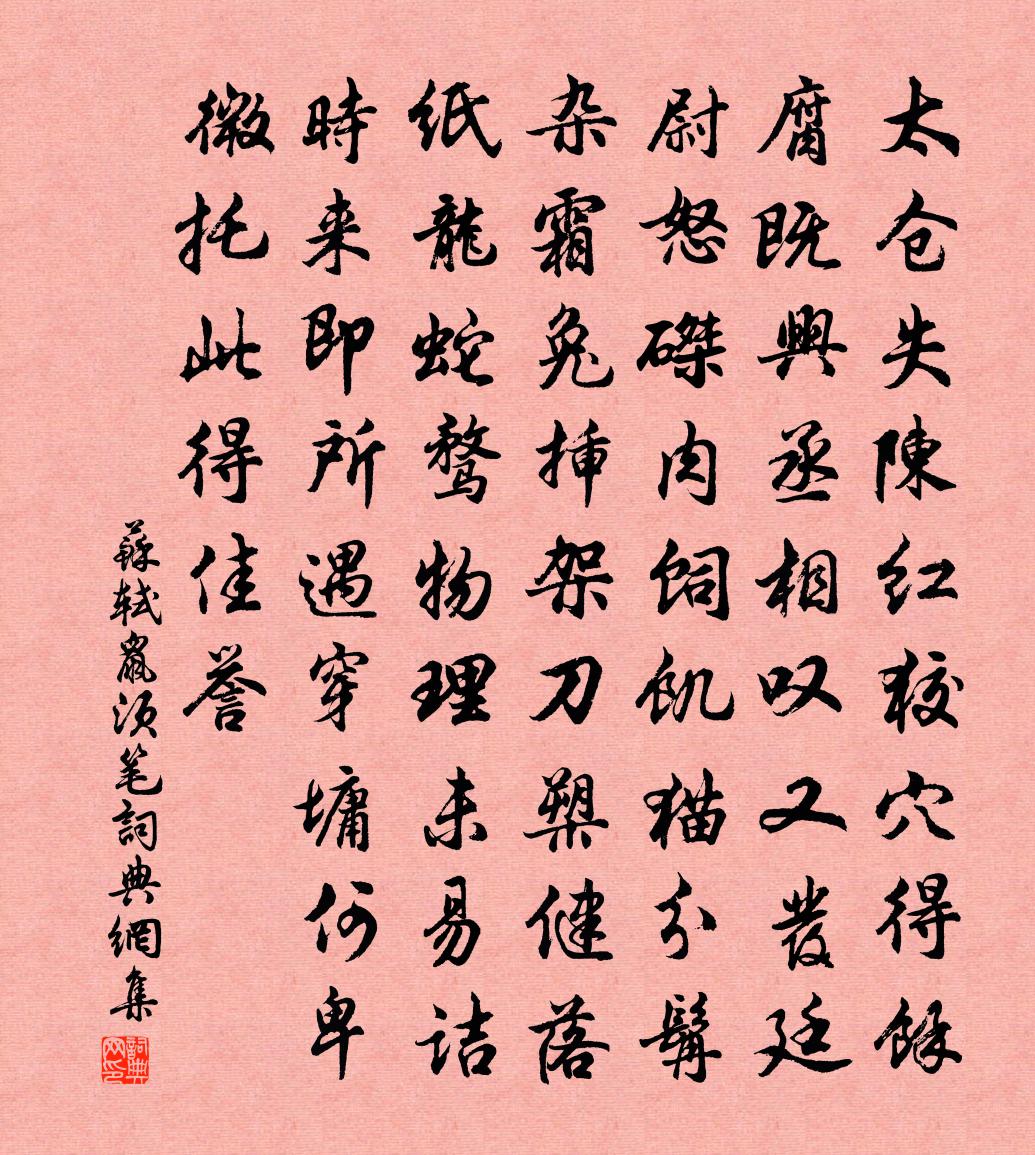 太仓失陳红狡穴得餘
腐既興丞相叹又發廷
尉怒磔肉饲飢猫分髯
杂霜兔揷架刀槊健落
纸龍蛇骛物理未易诘
時来即所遇穿墉何卑
微托此得佳誉
蘇轼鼠须笔詞典網集
詞典网印